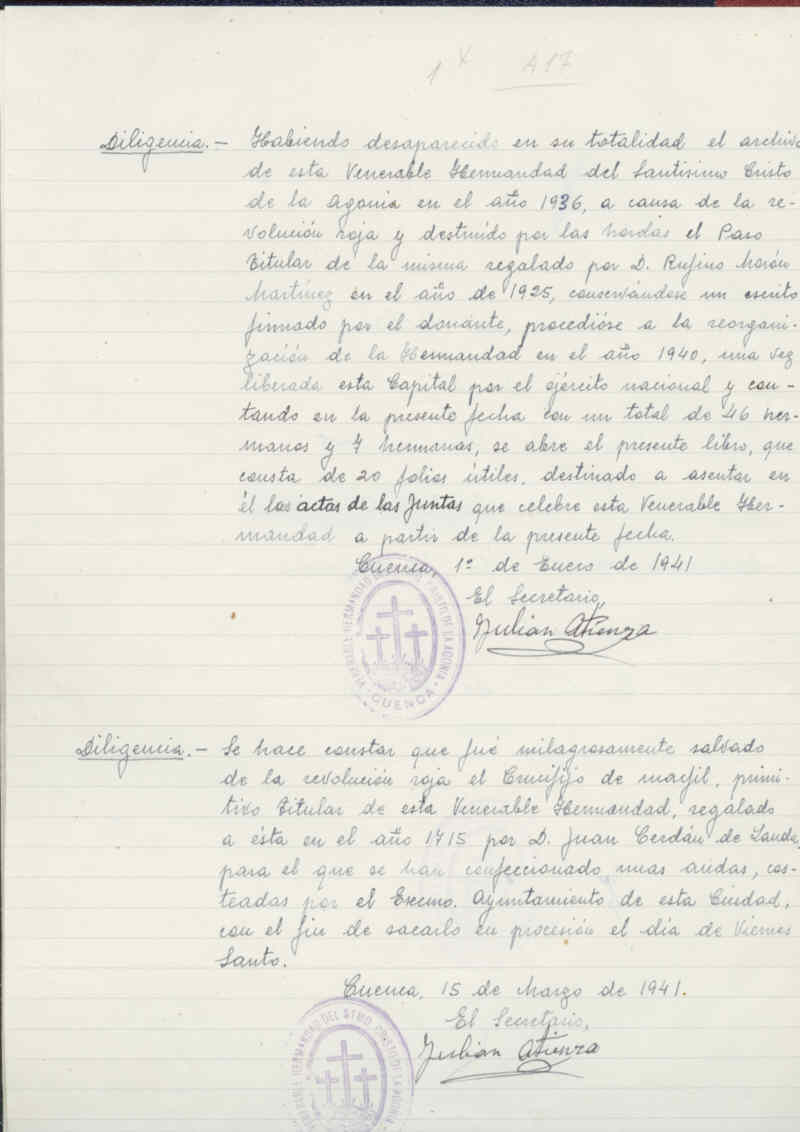 1 x A17
Diligencia.- Habiendo desaparecido en su totalidad el archivo
de esta Venerable Hermandad del Santísimo Cristo
de la Agonía en el año 1936, a causa de la re-
volución roja y destruído por las hordas el Paso
Titular de la misma regalado por D. Rufino Morón
Martínez en el año de 1925, conservándose un escrito
firmado por el donante, procedióse a la reorgani-
zación de la Hermandad en el año 1940, una vez
liberada esta Capital por el ejército nacional y con-
tando en la presente fecha con un total de 46 her-
manos y 7 hermanas, se abre el presente libro, que
consta de 20 folios útiles, destinado a asentar en
él las actas de las Juntas que celebre esta Venerable Her-
mandad a partir de la presente fecha.
Cuenca, 1º de Enero de 1941
El Secretario,
Julian Atienza
VENERABLE HERMANDAD DEL STMO. CRISTO DE LA AGONIA
CUENCA
Diligencia.- Se hace constar que fué milagrosamente salvado
de la revolución roja el Crucifijo de marfil, primi-
tivo Titular de esta Venerable Hermandad, regalado
a ésta en el año 1715 por D. Juan Cerdán de Landa,
para el que se han confeccionado unas andas, cos-
teadas por el Excmo. Ayuntamiento de esta Ciudad,
con el fin de sacarlo en procesión el día de Viernes
Santo.
Cuenca, 15 de Marzo de 1941.
El Secretario,
Julian Atienza
VENERABLE HERMANDAD DEL STMO. CRISTO DE LA AGONIA